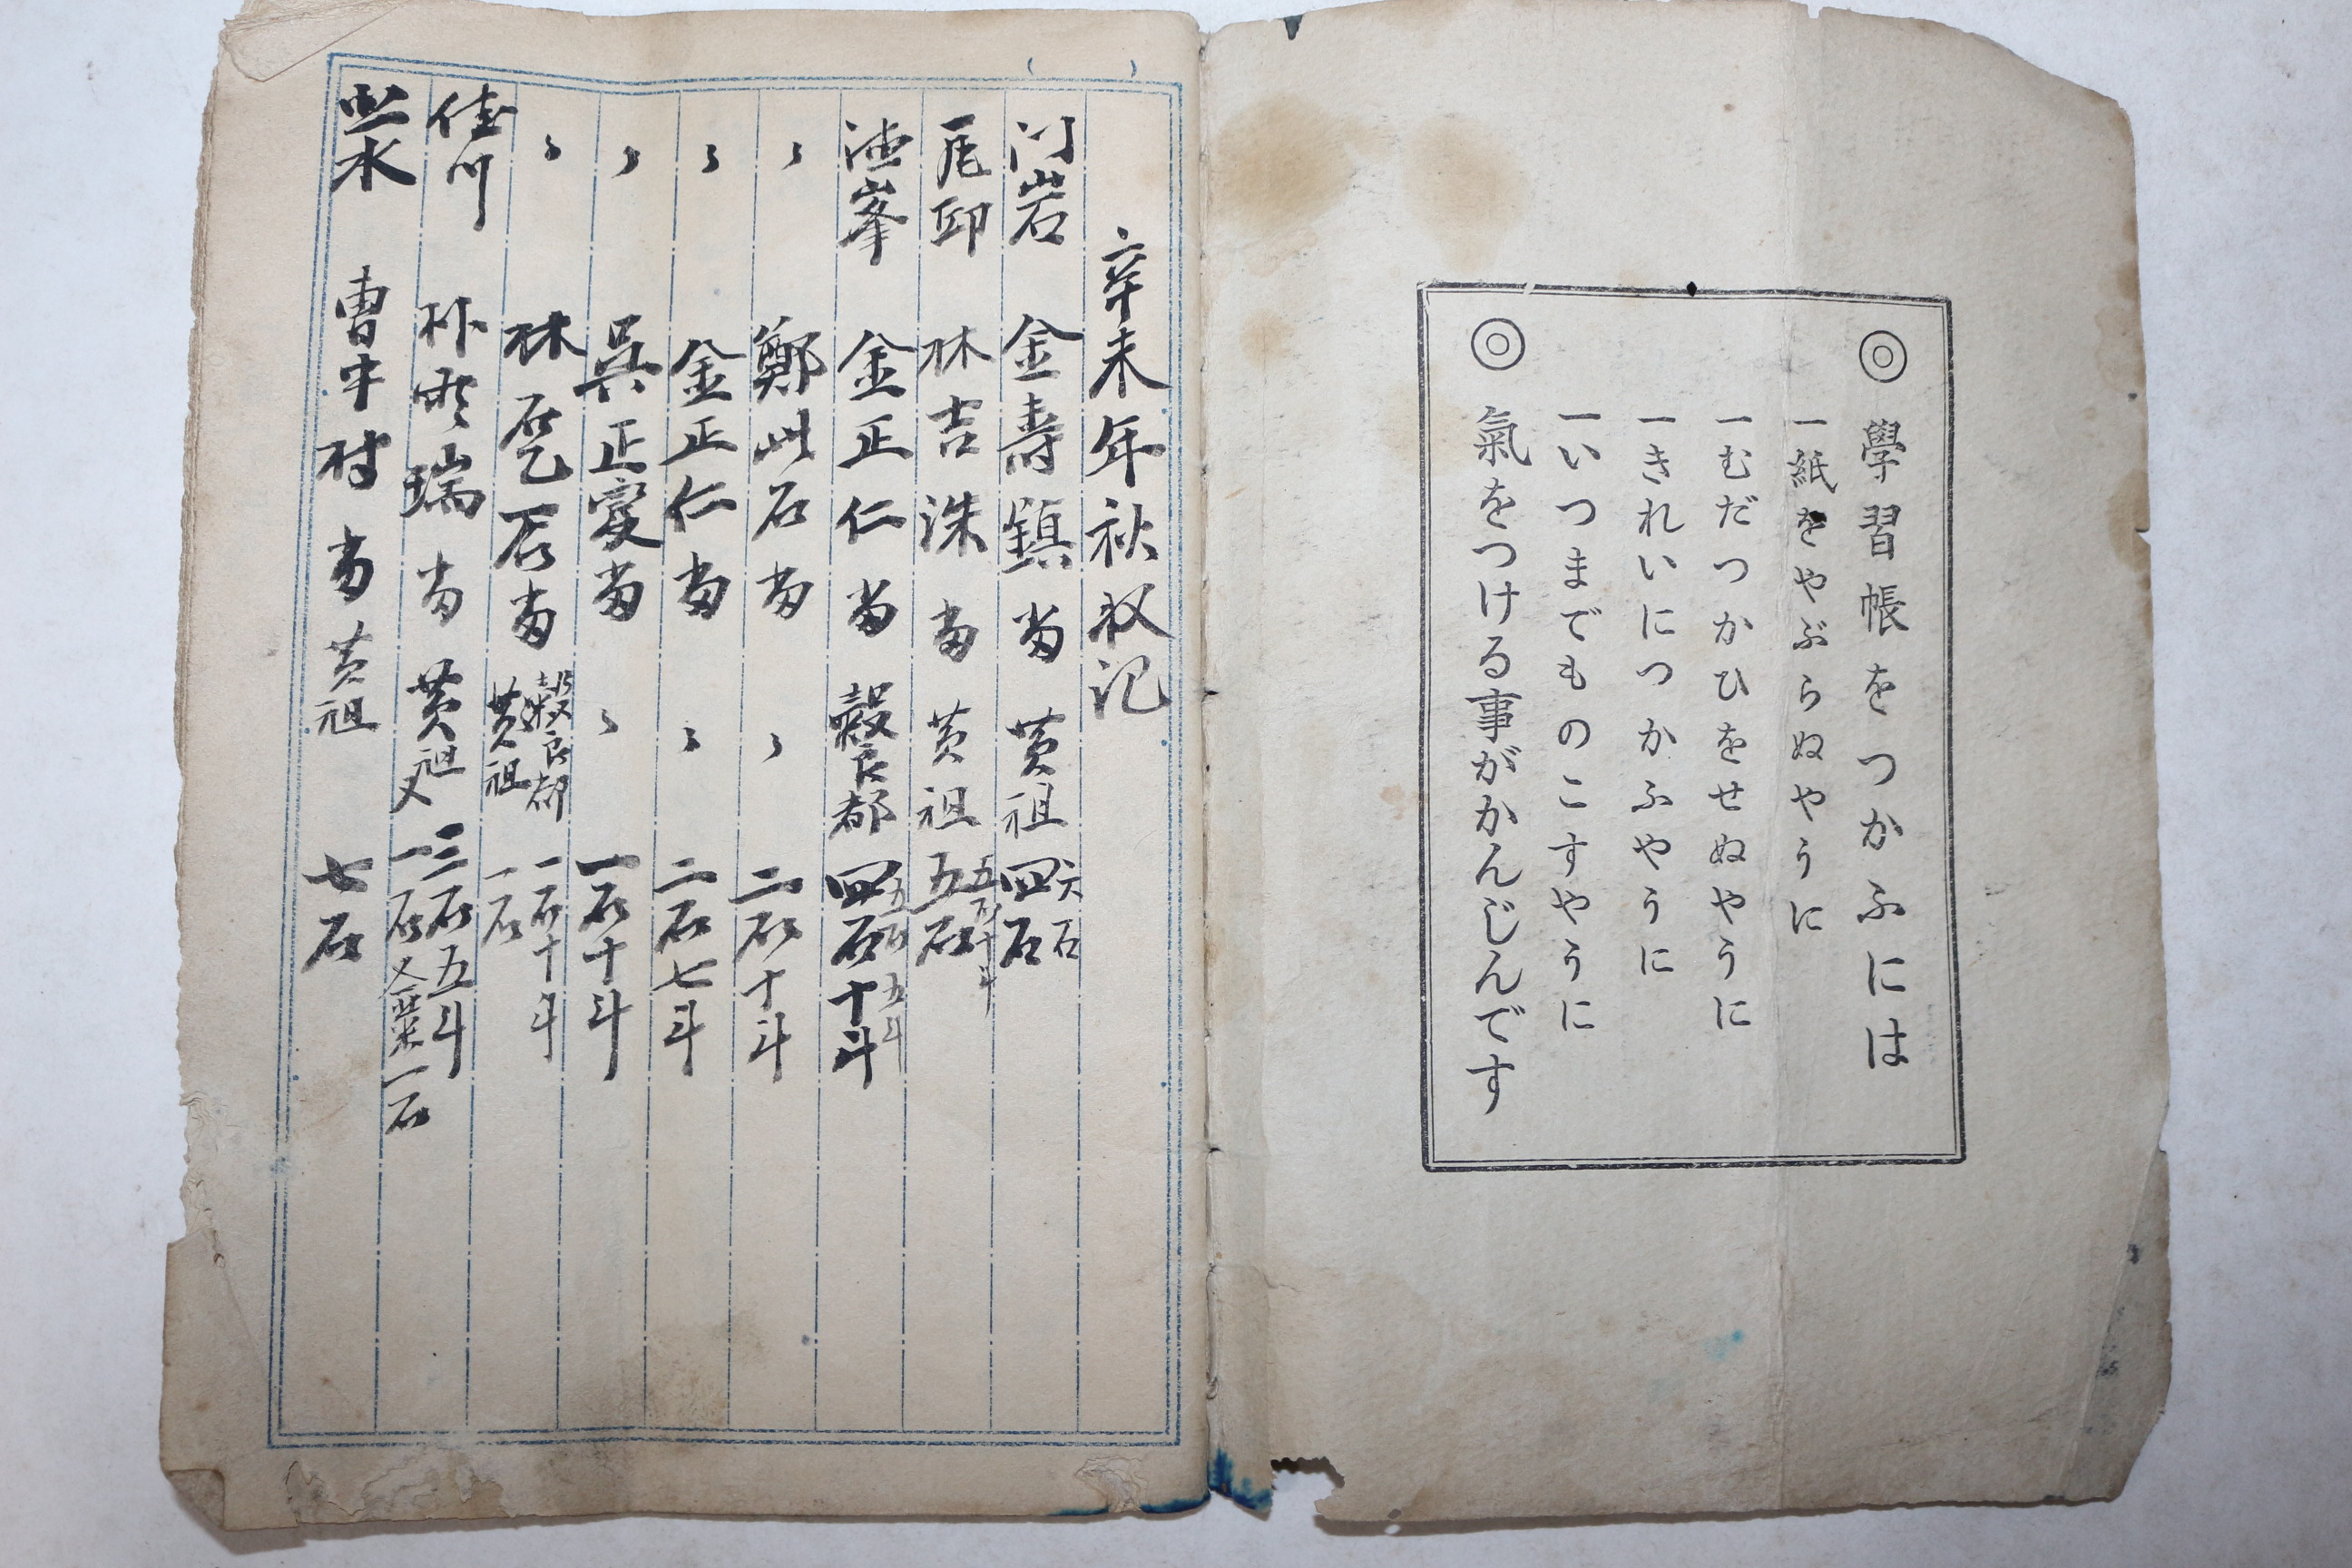 ◎學習帳をつかふには
一紙をやぶらぬやうに
一むだつかひをせぬやうに
一きれいにつかふやうに
一いつまでものこすやうに
◎氣をつける事がかんじんです
辛未年秋收記
门岩 金壽鎮 畓 黄租 六石 四石
尾卬 林吉洙 畓 黄租 五石十斗 五石
峯 金正仁 畓 穀良都 五石五斗 四石十斗
〻 鄭此石 畓 〻 二石十斗
〻 金正仁 畓 〻 二石七斗
〻 吳正 畓 〻 一石十斗
〻 林 畓 穀良都 一石十斗 黄租 一石
佳川 朴 瑞 畓 黄租 三石五斗 又 一石 又 一石
水 曹 畓 黄租 七石